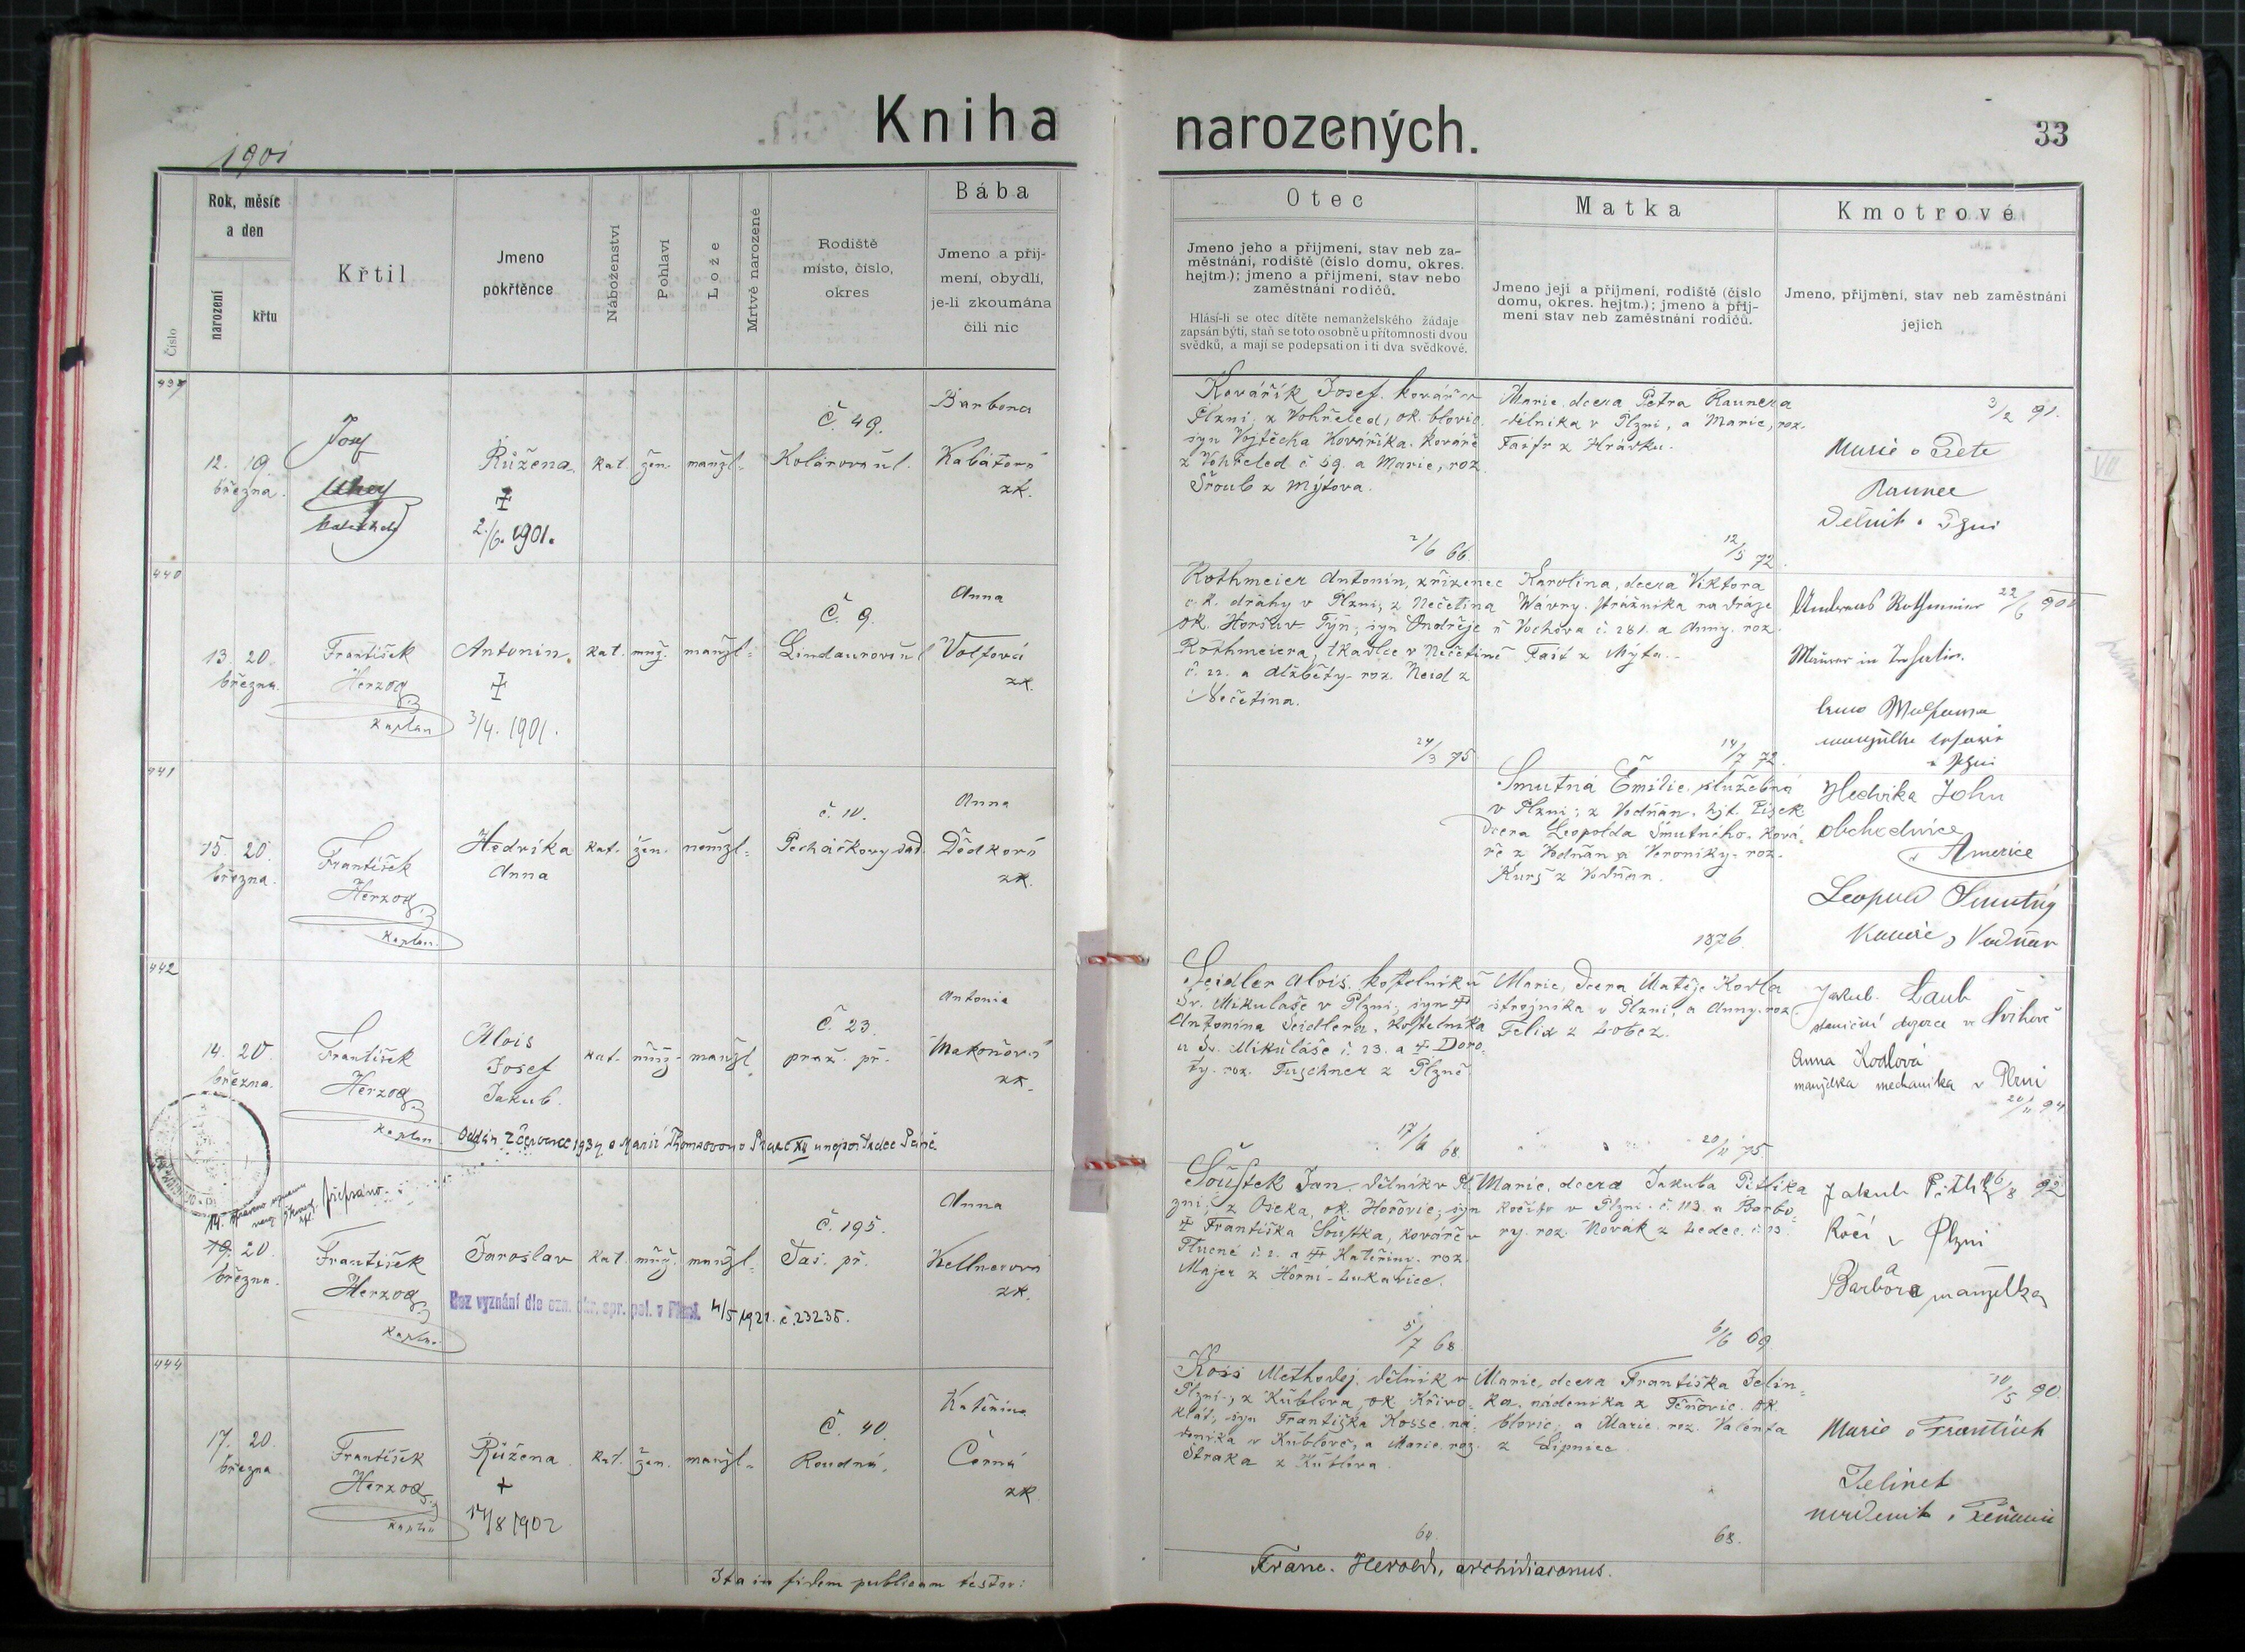 Kniha
narozených.
33
1901
Číslo
Rok, měsíc
a den
narození
křtu
Křtil
Jmeno
pokřtěnce
Náboženství
Pohlaví
Lože
Mrtvě narozené
Rodiště
místo, číslo,
okres
Bába
Jmeno a příj-
mení, obydlí,
je-li zkoumána
čili nic
Otec
Jmeno jeho a příjmení, stav neb za-
městnání, rodiště (číslo domu, okres.
hejtm.); jmeno a příjmení, stav nebo
zaměstnání rodičů.
Hlásí-li se otec dítěte nemanželského žádaje
zapsán býti, staň se toto osobně u přítomnosti dvou
svědků, a mají se podepsati on i ti dva svědkové.
Matka
Jmeno její a příjmení, rodiště (číslo
domu, okres. hejtm.); jmeno a příj-
mení stav neb zaměstnání rodičů.
Kmotrové
Jmeno, příjmení, stav neb zaměstnání
jejich
12. 19.
března.
Josef
Růžena
2./6. 1901.
kat. žen. manžl.
Č. 49.
Kolárova ul.
Barbora
zk.
Kovářík Josef, kovář v
Plzni, z Vohřeled, ok. blovic.
syn Vojtěcha Kováříka, kováře
z Vohřeled č 59. a Marie, roz.
Šroub z Mýtova.
2/6 66
Marie, dcera Petra Raunera
dělníka v Plzni, a Marie, roz.
Faifr z Hrádku.
12/5 72
3/2 91.
440
13. 20.
března.
František
Herzog
kaplan
Antonín
3/4. 1901.
kat. muž. manžl.
Č. 9.
Lindaurova ul
Anna
Volfová
zk.
Rothmeier Antonín, zřízenec
c. k. dráhy v Plzni, z Nečetina
ok. Horšův Týn, syn Ondřeje
Rothmeiera, tkadlce v Nečetině
č. 22. a Alžběty roz. Neid z
Nečetina.
24/3 75
Karolina, dcera Viktora
Wávry, strážníka na dráze
u Vochova č. 281. a Anny, roz.
Fait z Mýta.
14/7 72
441
15. 20.
března.
František
Herzog
kaplan.
Hedvika
Anna
kat. žen. nemžl.
č. 10.
Pecháčkovy sad.
Anna
Dědková
zk.
Smutná Emilie, služebná
v Plzni; z Vodňan, hjt. Písek
dcera Leopolda Smutného, ková-
ře z Vodňan a Veroniky, roz.
Kurš z Vodňan.
1876.
Hedvika John
obchodnice
v Americe
Leopold Smutný
Vodňan
442
14. 20.
března.
František
Herzog
kaplan
Alois
Josef
Jakub.
kat. muž. manžl.
Č. 23.
praž. př.
Antonie
Makoňová
zk.
Seidler Alois, kostelník u
Sv. Mikuláše v Plzni; syn
Antonína Seidlera, kostelníka
u Sv. Mikuláše č. 23. a Doro-
ty, roz. Tuschner z Plzně
17/6 68
Marie, dcera Matěje Kodla
strojníka v Plzni, a Anny, roz.
Felix z Lobez.
20/11 75
Jakub Taub
staniční dozorce ve Švihově
Anna Kodlová
manželka mechanika v Plzni
20/11 94
přepsáno
19. 20.
března.
František
Herzog
kaplan
Jaroslav
kat. muž. manžl.
Č. 195.
Sas. př.
Anna
Kellnerova
zk.
Bez vyznání dle ozn. okr. spr. pol. v Plzni. 4/5 1921. č. 23235.
Šoustek Jan, dělník v Pl-
zni, z Oseka, ok. Hořovic, syn
Františka Šoustka, kováře v
Tlucné č. 2. a Kateřiny, roz.
Majer z Horní Lukavice.
5/7 68
Marie, dcera Jakuba Pitlíka
kočího v Plzni č. 113. a Barbo-
ry roz. Novák z Ledec. č. 13.
6/6 69
Kočí v Plzni
Barbora manželka
444
17. 20.
března
František
Herzog
kaplan
Růžena
17/8 1902
kat. žen. manžl.
Č. 40.
Roudná.
Kateřina
Černá
zk
Koss Methoděj, dělník v
Plzni, z Kublova, ok. Křivo-
klát, syn Františka Kosse, ná-
deníka v Kublově, a Marie, roz.
Straka z Kublova.
60.
Marie, dcera Františka Jelín-
ka, nádeníka z Těňovic, ok
blovic. a Marie roz. Valenta
z Lipnice.
68.
10/5 90
Marie a František
Jelínek
Ita in fidem publicam testor:
Franc. Herold, archidiaconus.